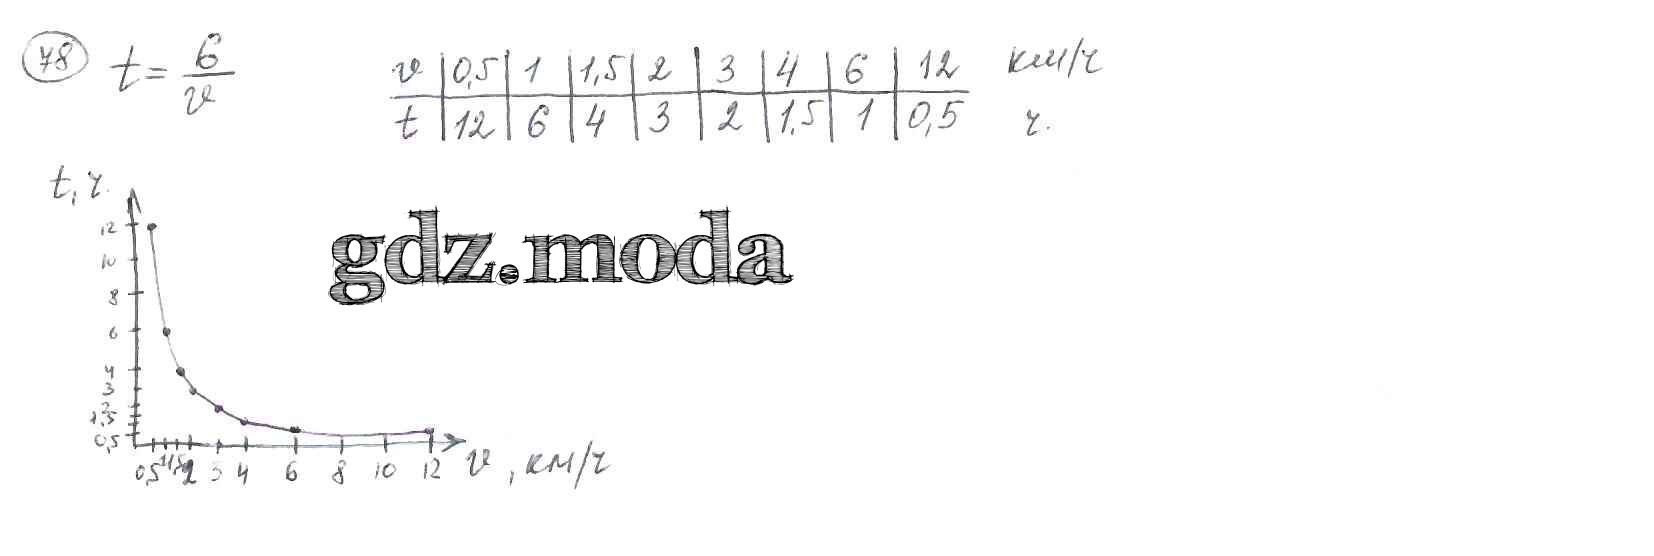 78 t = 6/v
v 0,5 1 1,5 2 3 4 6 12 км/ч
t 12 6 4 3 2 1,5 1 0,5 ч.
t, ч.
gdz.moda
12
10
8
6
4
3
2
1,5
0,5
0,5 1 1,5 2 3 4 6 8 10 12 v, км/ч